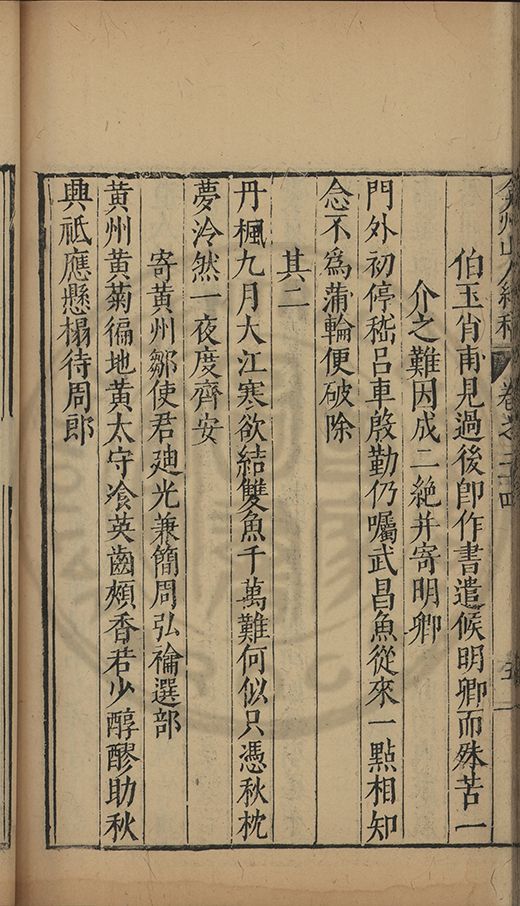 伯玉肖甫見過後卽作書遣候明卿而殊苦一
介之難因成二絶并寄明卿
門外初停嵇呂車殷勤仍囑武昌魚從來一點相知
念不爲蒲輪便破除
其二
丹楓九月大江寒欲結雙魚千萬難何似只憑秋枕
夢泠然一夜度齊安
寄黃州鄒使君廸光兼簡周弘禴選部
黃州黃菊徧地黃太守飡英齒頰香若少醇醪助秋
興祗應懸榻待周郎